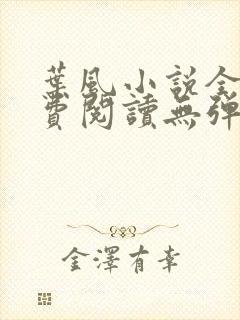 葉風小說全
費閱讀無彈
金澤有幸